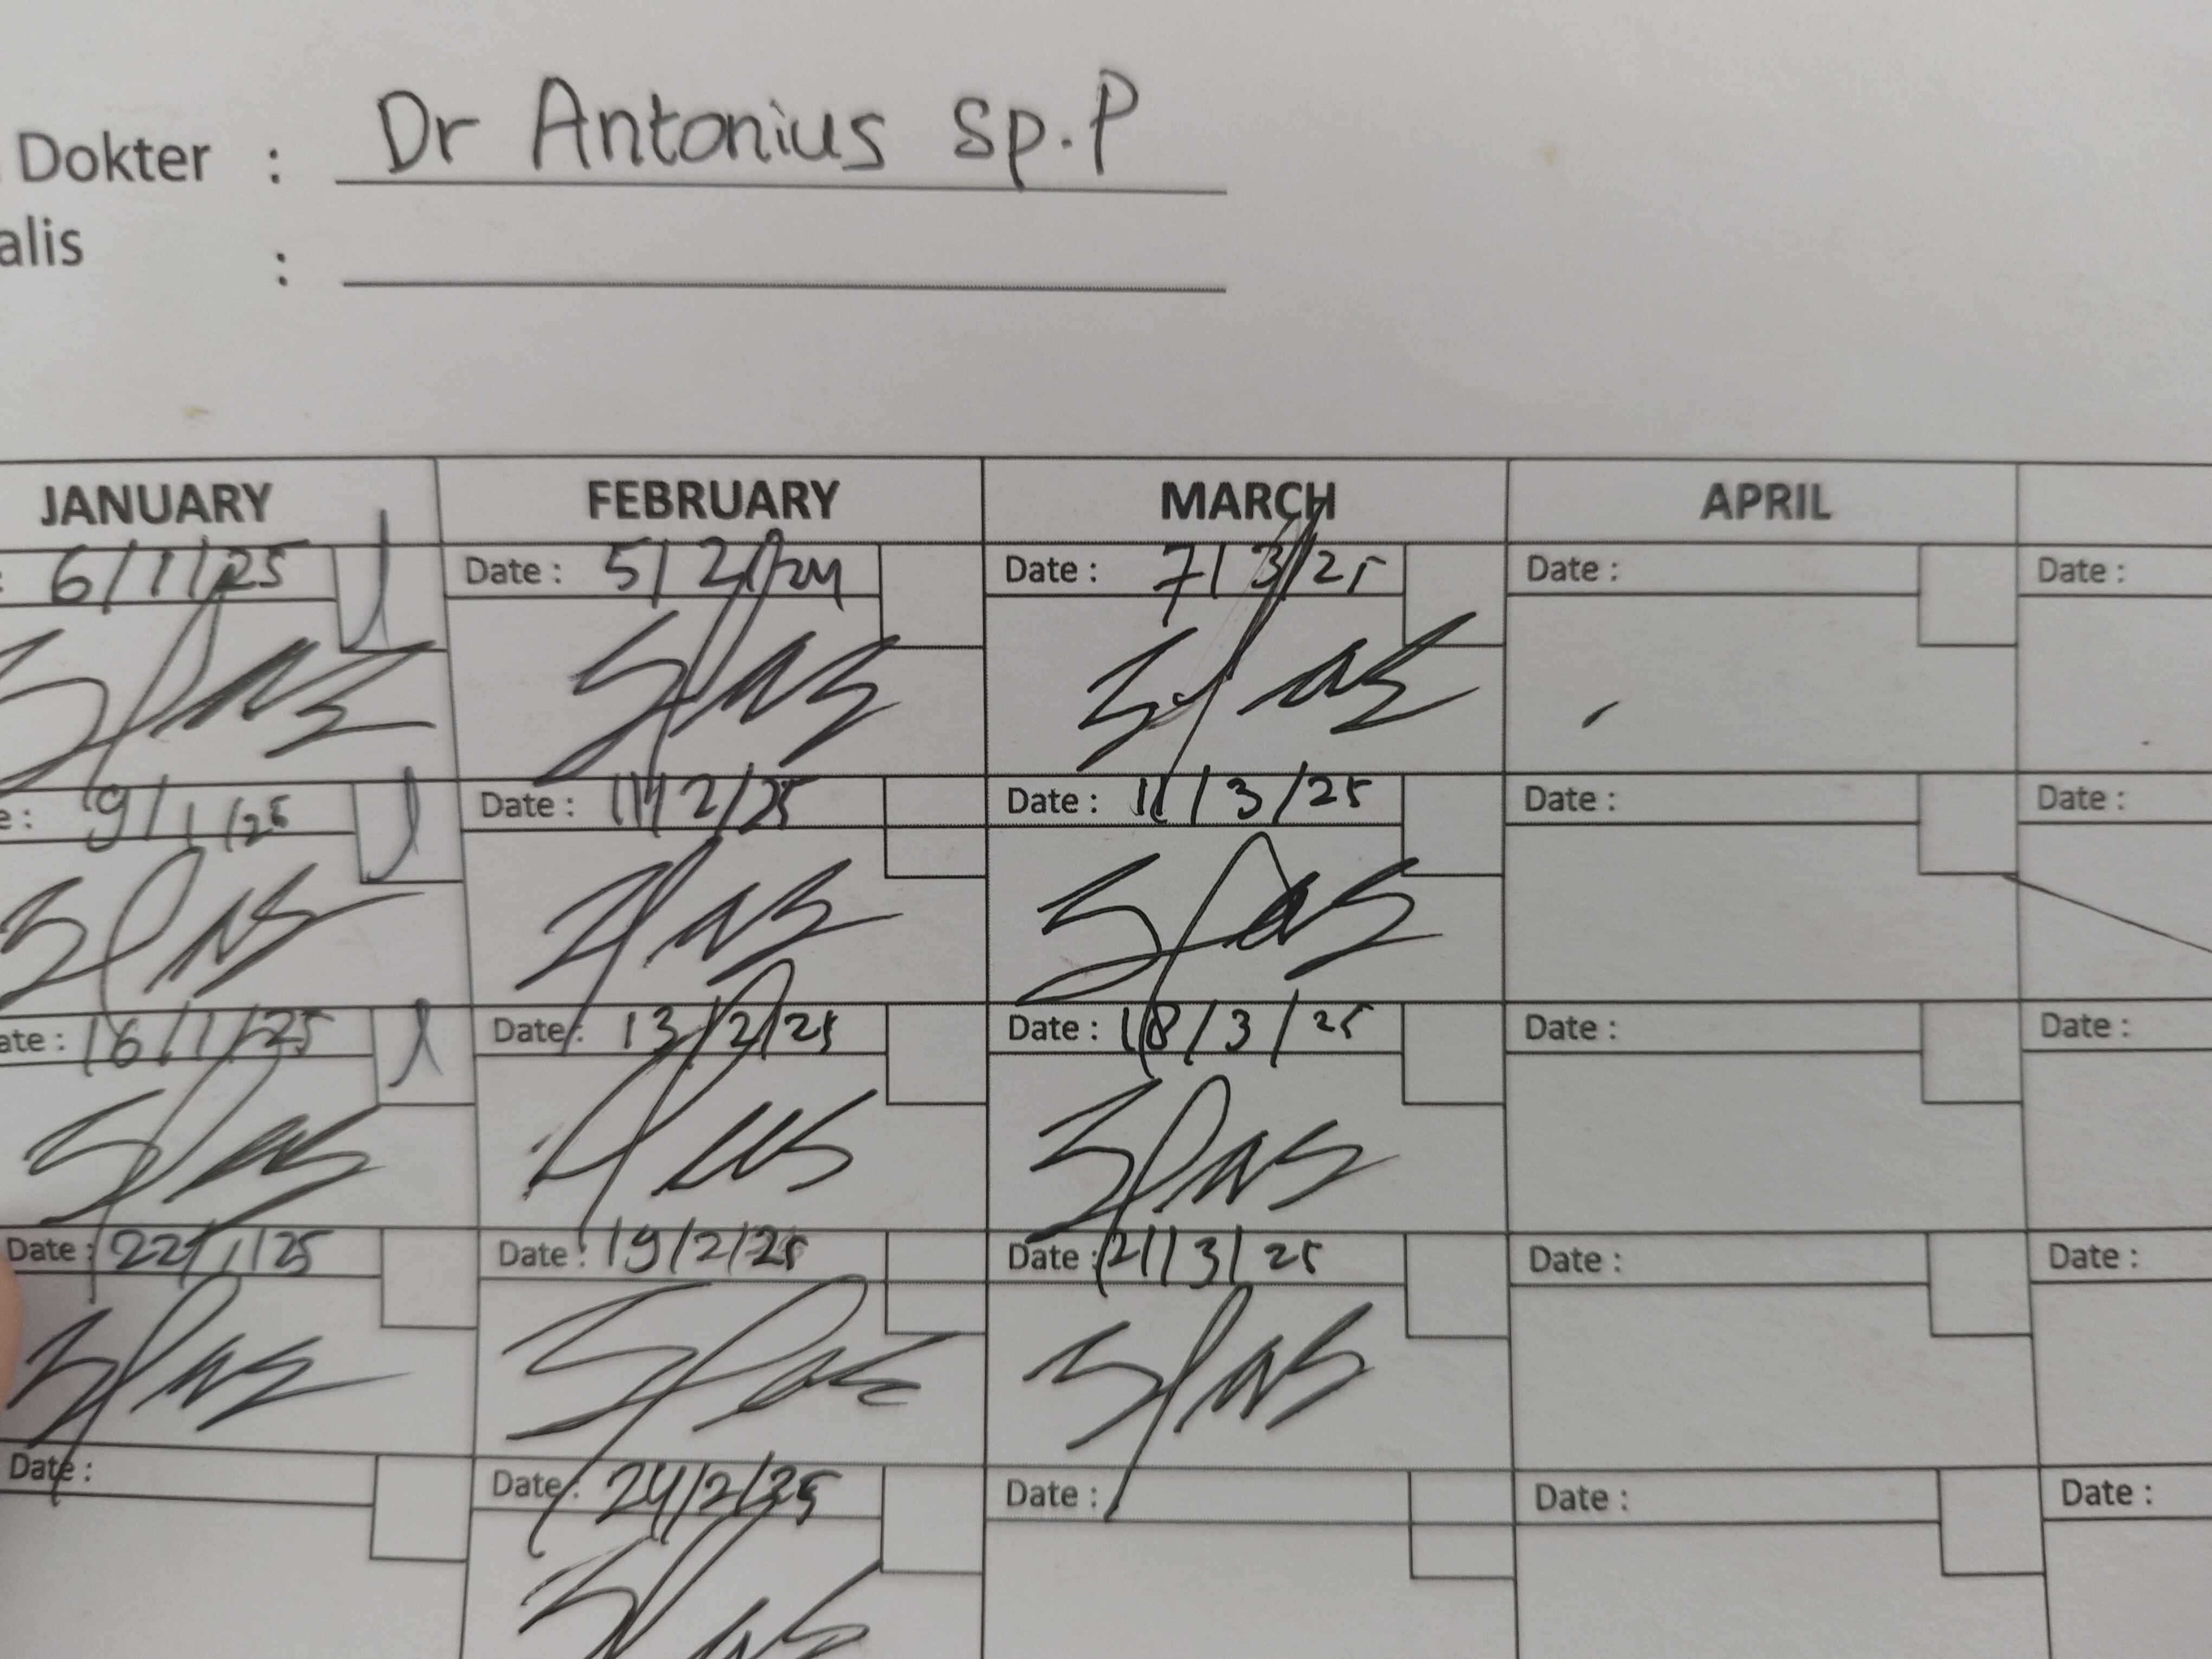 Dokter : Dr Antonius Sp.P
alis :
JANUARY FEBRUARY MARCH APRIL
: 6/1/25 Date : 5/2/24 Date : 7/3/25 Date : Date :
e : 9/1/25 Date : 11/2/25 Date : 11/3/25 Date : Date :
ate : 16/1/25 Date : 13/2/25 Date : 18/3/25 Date : Date :
Date : 22/1/25 Date : 19/2/25 Date : 21/3/25 Date : Date :
Date : Date : 24/2/25 Date : Date : Date :